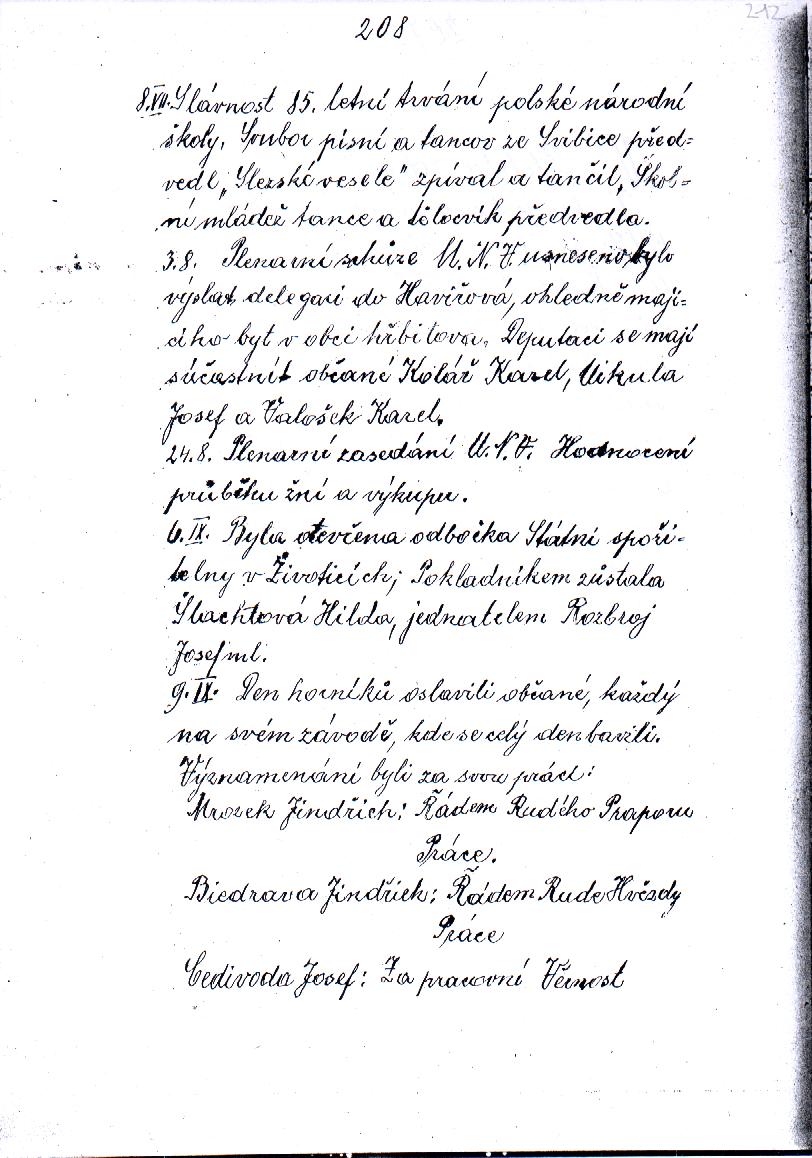 212
208
8.VII. Slávnost 85. letní trvání polské národní
školy. Soubor písní a tancov ze Svibice před=
vedl „Slezské vesele" zpíval a tančil, Škol-
ní mládež tance a tělocvík předvedla.
3.8. Plenarní schůze M.N.V. usneseno bylo
výslat delegaci do Havířová, ohledně mají=
cího byt v obci hřbitova. Deputaci se mají
súčastnít občané Kolář Karel, Mikula
Josef a Valošek Karel.
24.8. Plenarní zasedání M.N.V. Hodnocení
průběhu žní a výkupu.
6.IX. Byla otevřena odbočka Státní spoři-
telny v Životicích; Pokladníkem zůstala
Šlachtová Hilda, jednatelem Rozbroj
Josef ml.
9.IX. Den horníků oslavili občané, každý
na svém závodě, kde se celý den bavili.
Významenání byli za svou práci:
Mrozek Jindřich: Řádem Rudého Praporu
Práce.
Biedrava Jindřich: Řádem Rude Hvězdy
Práce
Cedivoda Josef: Za pracovní Věrnost